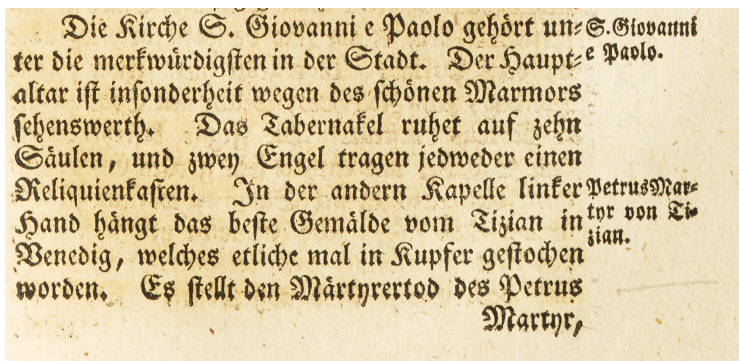 Die Kirche S. Giovanni e Paolo gehört un-
ter die merkwürdigsten in der Stadt. Der Haupt-
altar ist insonderheit wegen des schönen Marmors
sehenswerth. Das Tabernakel ruhet auf zehn
Säulen, und zwey Engel tragen jedweder einen
Reliquienkasten. In der andern Kapelle linker
Hand hängt das beste Gemälde vom Tizian in
Venedig, welches etliche mal in Kupfer gestochen
worden. Es stellt den Märtyrertod des Petrus
Martyr,
S. Giovanni
e Paolo.
Petrus Mar-
tyr von Ti-
zian.